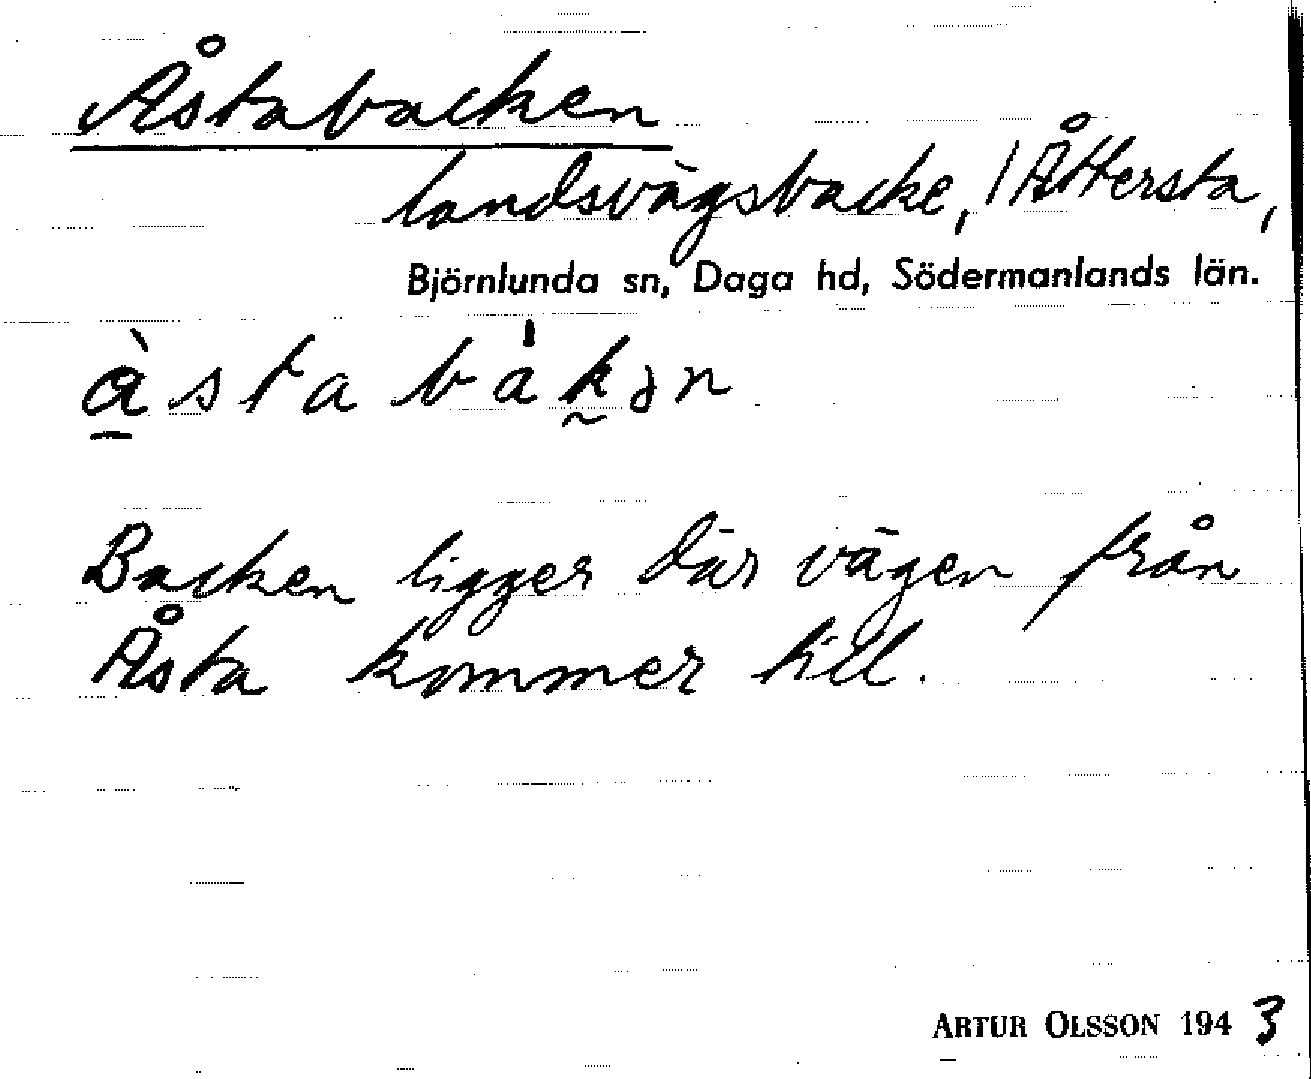 Åstabacken
landsvägsbacke, / Åttersta,
Björnlunda sn, Daga hd, Södermanlands län.
Backen ligger där vägen från
Åsta kommer till.
ARTUR OLSSON 1943